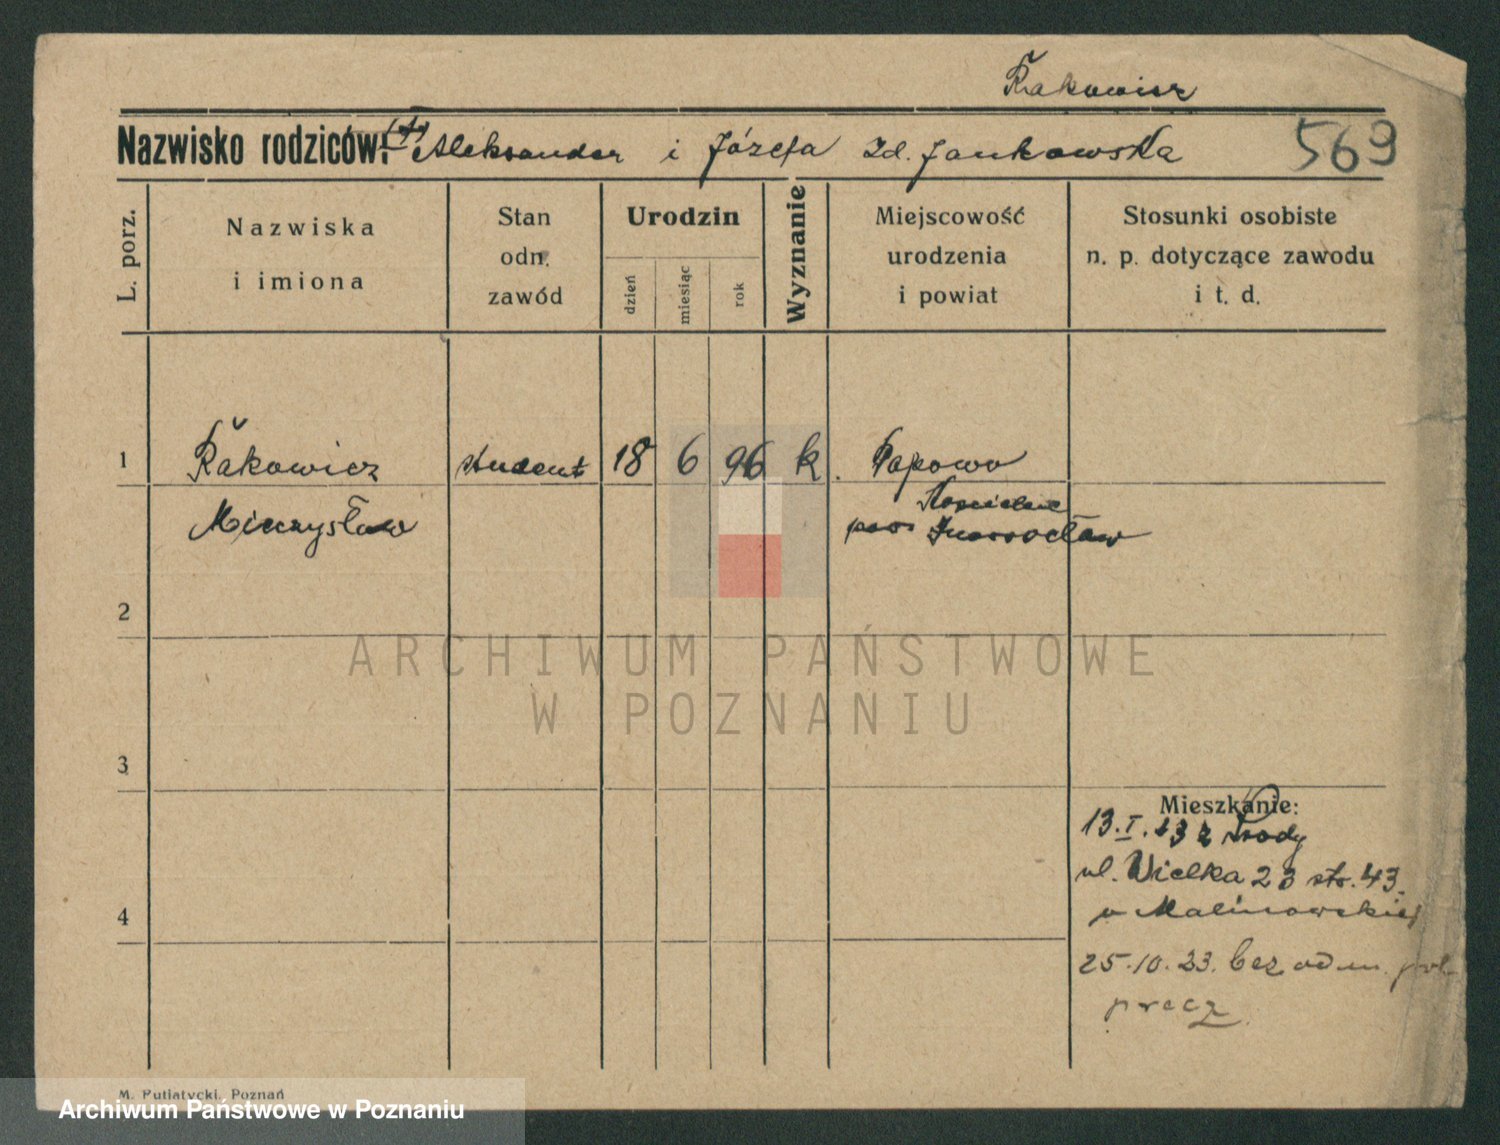 Rakowicz
Nazwisko rodziców: (†) Aleksander i Józefa zd. Jankowska 569
L. porz.
Nazwiska
i imiona
Stan
odn.
zawód
Urodzin
dzień
miesiąc
rok
Wyznanie
Miejscowość
urodzenia
i powiat
Stosunki osobiste
n. p. dotyczące zawodu
i t. d.
1 Rakowicz student 18 6 96 k. Papowo
Mieczysław Kościelne
pow Inowrocław
2
ARCHIWUM PAŃSTWOWE
W POZNANIU
3
Mieszkanie:
13.I.23 z Środy
ul. Wielka 23 str. 43.
4 u Malinowskiej
25.10.23. bez odm. pol.
precz
M. Putiatycki, Poznań
Archiwum Państwowe w Poznaniu